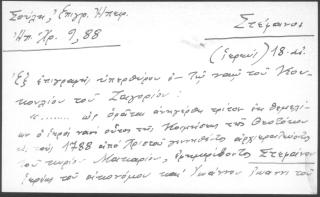 Σούλη, Ἐπιγρ. Ἠπειρ.
Ἠπ. Χρ. 9, 88
Στέφανος
(ἱερεύς) 18. αἰ.
Ἐξ ἐπιγραφῆς ὑπερθύρου ἐν τῷ ναῷ τοῦ Κου-
κουλίου τοῦ Ζαγορίου:
"...... ὡς ὁρᾶται ἀνηγέρθη τρίτον ἐκ θεμελί-
ων ὁ ἱερὸς ναὸς οὗτος τῆς Κοιμήσεως τῆς Θεοτόκου
τοῦ 1788 ἀπὸ Χριστοῦ γεννηθέντος ἀρχιερατεύοντος
τοῦ κυρίου Μακαρίου, ἐφημερεύοντος Στεφάνου
ἱερέως τοῦ οἰκονόμου καὶ Ἰωάννου τοῦ